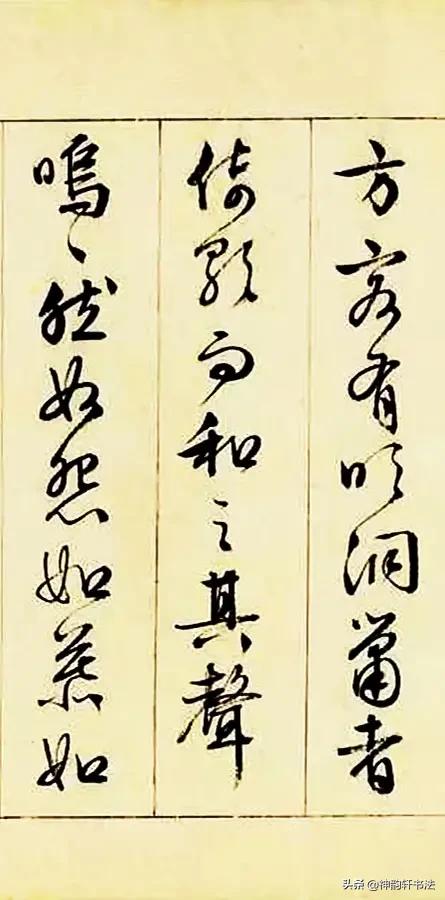 方客有吹洞簫者
倚歌而和之其聲
嗚〻然如怨如慕如
头条 @神韵轩书法